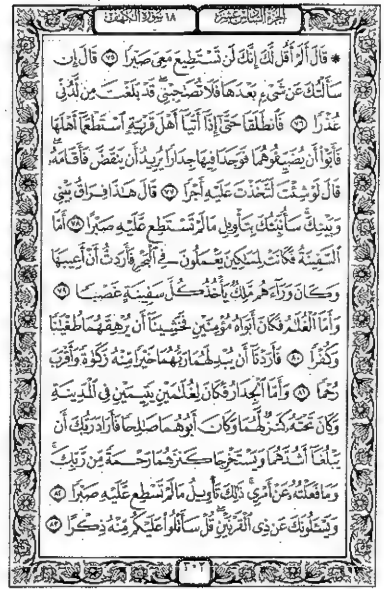 الجزء السادس عشر ١٨ سورة الكهف
* قَالَ أَلَمْ أَقُل لَّكَ إِنَّكَ لَن تَسْتَطِيعَ مَعِيَ صَبْرًا ٧٥ قَالَ إِن
سَأَلْتُكَ عَن شَيْءٍ بَعْدَهَا فَلَا تُصَاحِبْنِي قَدْ بَلَغْتَ مِن لَّدُنِّي
عُذْرًا ٧٦ فَانطَلَقَا حَتَّىٰ إِذَا أَتَيَا أَهْلَ قَرْيَةٍ اسْتَطْعَمَا أَهْلَهَا
فَأَبَوْا أَن يُضَيِّفُوهُمَا فَوَجَدَا فِيهَا جِدَارًا يُرِيدُ أَن يَنقَضَّ فَأَقَامَهُ
قَالَ لَوْ شِئْتَ لَتَّخَذْتَ عَلَيْهِ أَجْرًا ٧٧ قَالَ هَٰذَا فِرَاقُ بَيْنِي
وَبَيْنِكَ سَأُنَبِّئُكَ بِتَأْوِيلِ مَا لَمْ تَسْتَطِع عَّلَيْهِ صَبْرًا ٧٨ أَمَّا
السَّفِينَةُ فَكَانَتْ لِمَسَاكِينَ يَعْمَلُونَ فِي الْبَحْرِ فَأَرَدتُّ أَنْ أَعِيبَهَا
وَكَانَ وَرَاءَهُم مَّلِكٌ يَأْخُذُ كُلَّ سَفِينَةٍ غَصْبًا ٧٩
وَأَمَّا الْغُلَامُ فَكَانَ أَبَوَاهُ مُؤْمِنَيْنِ فَخَشِينَا أَن يُرْهِقَهُمَا طُغْيَانًا
وَكُفْرًا ٨٠ فَأَرَدْنَا أَن يُبْدِلَهُمَا رَبُّهُمَا خَيْرًا مِّنْهُ زَكَاةً وَأَقْرَبَ
رُحْمًا ٨١ وَأَمَّا الْجِدَارُ فَكَانَ لِغُلَامَيْنِ يَتِيمَيْنِ فِي الْمَدِينَةِ
وَكَانَ تَحْتَهُ كَنزٌ لَّهُمَا وَكَانَ أَبُوهُمَا صَالِحًا فَأَرَادَ رَبُّكَ أَن
يَبْلُغَا أَشُدَّهُمَا وَيَسْتَخْرِجَا كَنزَهُمَا رَحْمَةً مِّن رَّبِّكَ
وَمَا فَعَلْتُهُ عَنْ أَمْرِي ذَٰلِكَ تَأْوِيلُ مَا لَمْ تَسْطِع عَّلَيْهِ صَبْرًا ٨٢
وَيَسْأَلُونَكَ عَن ذِي الْقَرْنَيْنِ قُلْ سَأَتْلُو عَلَيْكُم مِّنْهُ ذِكْرًا ٨٣
٣٠٢